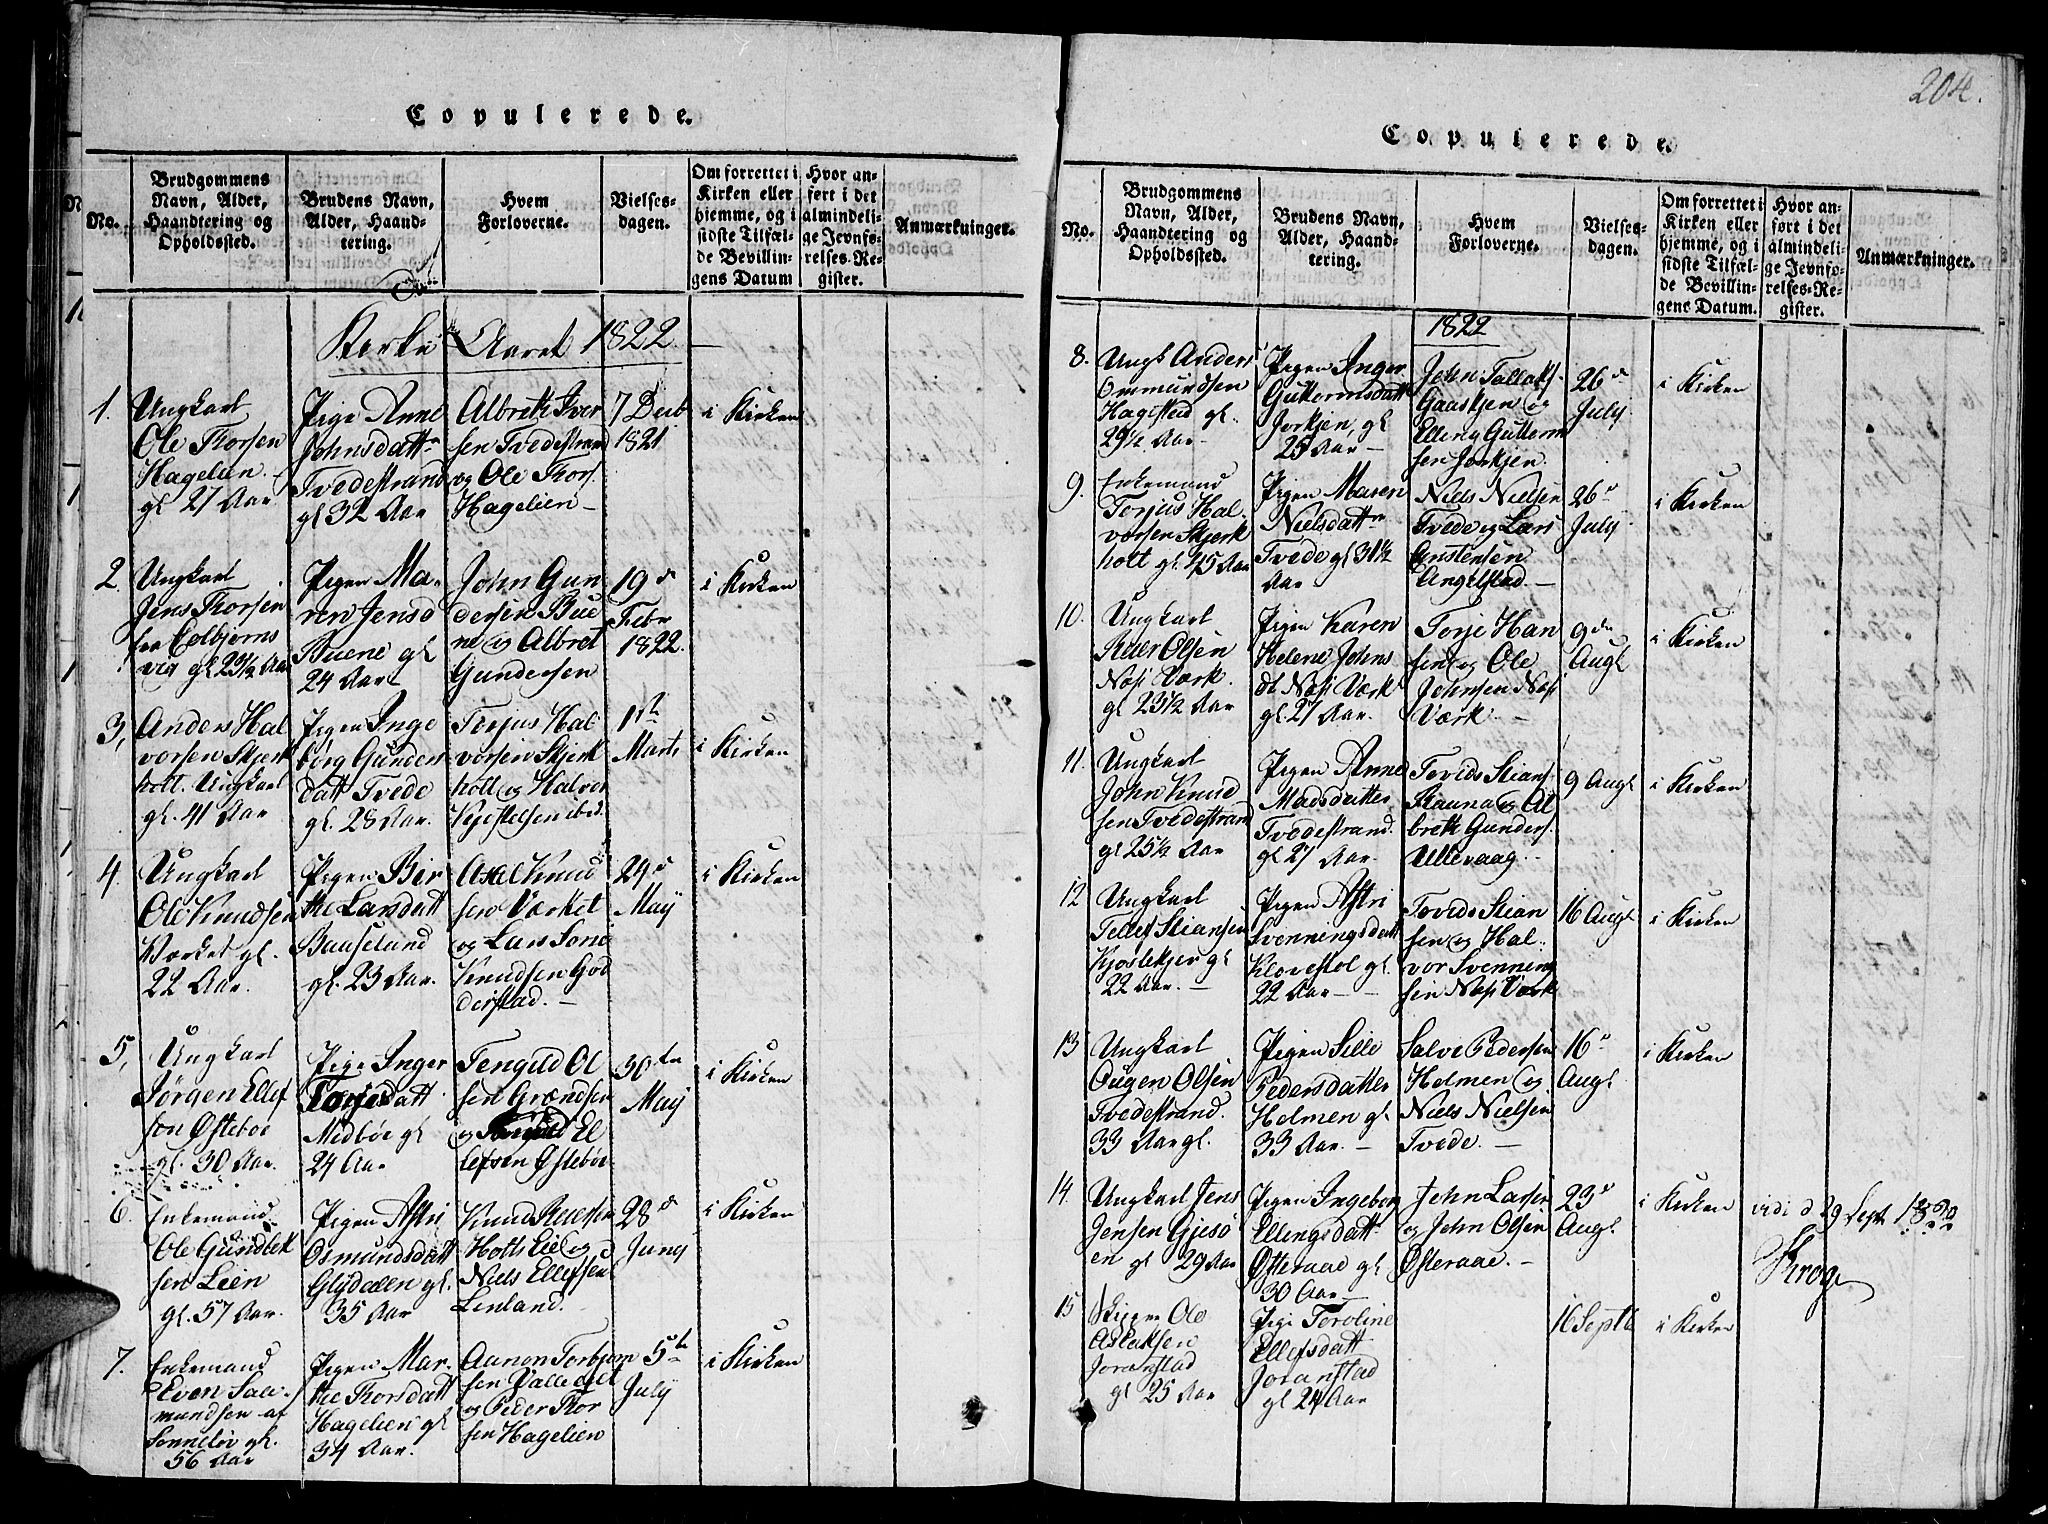 204.
Copulerede.
No.
Brudgommens
Navn, Alder,
Haandtering og
Opholdssted.
Brudens Navn,
Alder, Haand-
tering.
Hvem
Forloverne.
Vielses-
dagen.
Om forrettet i
Kirken eller
hjemme, og i
sidste Tilfæl-
de Bevillin-
gens Datum
Hvor an-
ført i det
almindeli-
ge Jevnfø-
relses-Re-
gister.
Anmærkninger.
Kirke Aaret 1822
1.
Ungkarl
Ole Thorsen
Hagelien
gl 27 Aar
Pige Anne
Johnsdattr
Tvedestrand
gl 32 Aar
Albreth Iver
sen Tvedestrand
og Ole Thors.
Hagelien
7 Decb
1821
i Kirken
2
Ungkarl
Jens Thorsen
fra Eolbjørns
vig gl 23½ Aar
Pigen Ma-
ren Jensd
Buene gl
24 Aar
John Gun
dersen Bue
ne og Albret
Gundersen
19d
Febr
1822.
i Kirken
3,
Anders Hal
vorsen Skjerk
holt. Ungkarl
gl. 41 Aar
Pigen Inge
børg Gunders
datt Tvede
gl. 28 Aar.
Terjus Hal
vorsen Skjerk
holt og Halvor
Kjøstelsen ibid.
1ste
Marts
i Kirken
4.
Ungkarl
Ole Knudsen
Værket gl.
22 Aar.
Pigen Bir
the Larsdatt
Bauseland
gl. 23 Aar.
Axel Knud
sen Værket
og Lars Søn
Knudsen God
derstad.
24d
May
i Kirken
5,
Ungkarl
Jørgen Ellef
sen Østebøe
gl. 30 Aar.
Pige Inger
Torjesdatt
Midbøe gl
24 Aar
Tengild Ol
sen Grændsen
og El
lefsen Østebøe
30te
May
i Kirken
6.
Enkemand
Ole Gundlek
sen Leien
gl. 57 Aar.
Pigen Astri
Osmundsdatt
Glydalen gl.
35 Aar
Knud Reiersen
Holts Eie og
Niels Ellefsen
Lenland.
28d
Juny
i Kirken
7.
Enkemand
Even Saa-
mundsen af
Sønneløv gl.
56 Aar
Pigen Mar-
the Thorsdatt
Hagelien gl
34 Aar.
Aanon Torbjørn
sen Valleqvet
og Peder Thor
sen Hagelien
5te
July
i Kirken
Copulerede.
No.
Brudgommens
Navn, Alder,
Haandtering og
Opholdssted.
Brudens Navn,
Alder, Haand-
tering.
Hvem
Forloverne.
Vielses-
dagen.
Om forrettet i
Kirken eller
hjemme, og i
sidste Tilfæl-
de Bevillin-
gens Datum.
Hvor an-
ført i det
almindeli-
ge Jevnfø-
relses-Re-
gister.
Anmærkninger.
1822
8.
Ungk Anders
Ommundsen
Hagestad gl.
29½ Aar
Pigen Inger
Guttormsdatt
Jorkjen, gl
25 Aar
John Tallaks.
Gaaskjen og
Elling Guttorm
sen Jorkjen.
26d
July
i Kirken
9.
Enkemand
Torjus Hal-
vorsen Skjerk
holt gl 45 Aar
Pigen Maren
Nielsdattr
Tvede gl 31½
Aar
Niels Nielsen
Tvede og Lars
Christensen
Angelstad.
26d
July
i Kirken
10.
Ungkarl
Reier Olsen
Næs Værk.
gl 23½ Aar
Pigen Karen
Helene Johns
dt Næs Værk
gl. 27 Aar.
Torje Han
sen og Ole
Johnsen Næs
Værk.
9de
Augl
i Kirken
11.
Ungkarl
John Knud
sen Tvedestrand
gl 25½ Aar
Pigen Anne
Madsdatter
Tvedestrand.
gl. 27 Aar.
Tovids Stians.
Rauna og Al
breth Gunders.
Ullevaag.
9 Augl
i Kirken
12
Ungkarl
Tellef Stiansen
Kjøslekjer gl
22 Aar.
Pigen Astri
Svenningsdatt
Kløvestøl gl.
22 Aar
Tovids Stian
sen og Hal-
vor Svenning
sen Næs Værk
16 Augl
i Kirken
13
Ungkarl
Ougen Olsen
Tvedestrand.
33 Aar gl.
Pigen Sille
Pedersdatter
Holmen gl
33 Aar.
Salve Pedersen
Holmen og
Niels Nielsen
Tvede.
16d
Augl
i Kirken
14.
Ungkarl Jens
Jensen Gjesø
en gl 29 Aar
Pigen Ingeborg
Ellingsdatt
Østeraae gl
30 Aar
John Larsen
og John Olsen
Østeraae.
23d
Augl.
i Kirken
vidi d 29 Sept 1822
Krog
15
Ole
Aslaksen
Joranstad
gl 25 Aar
Pige Toroline
Ellefsdatt
Joranstad
gl 24 Aar
16 Septb
i Kirken